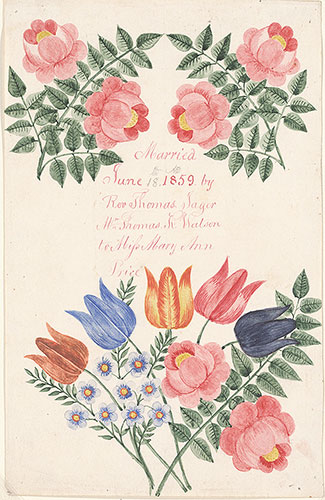 Married
June 18, 1859, by
Rev Thomas Sager
Mr Thomas K Watson
to Miss Mary Ann
Price